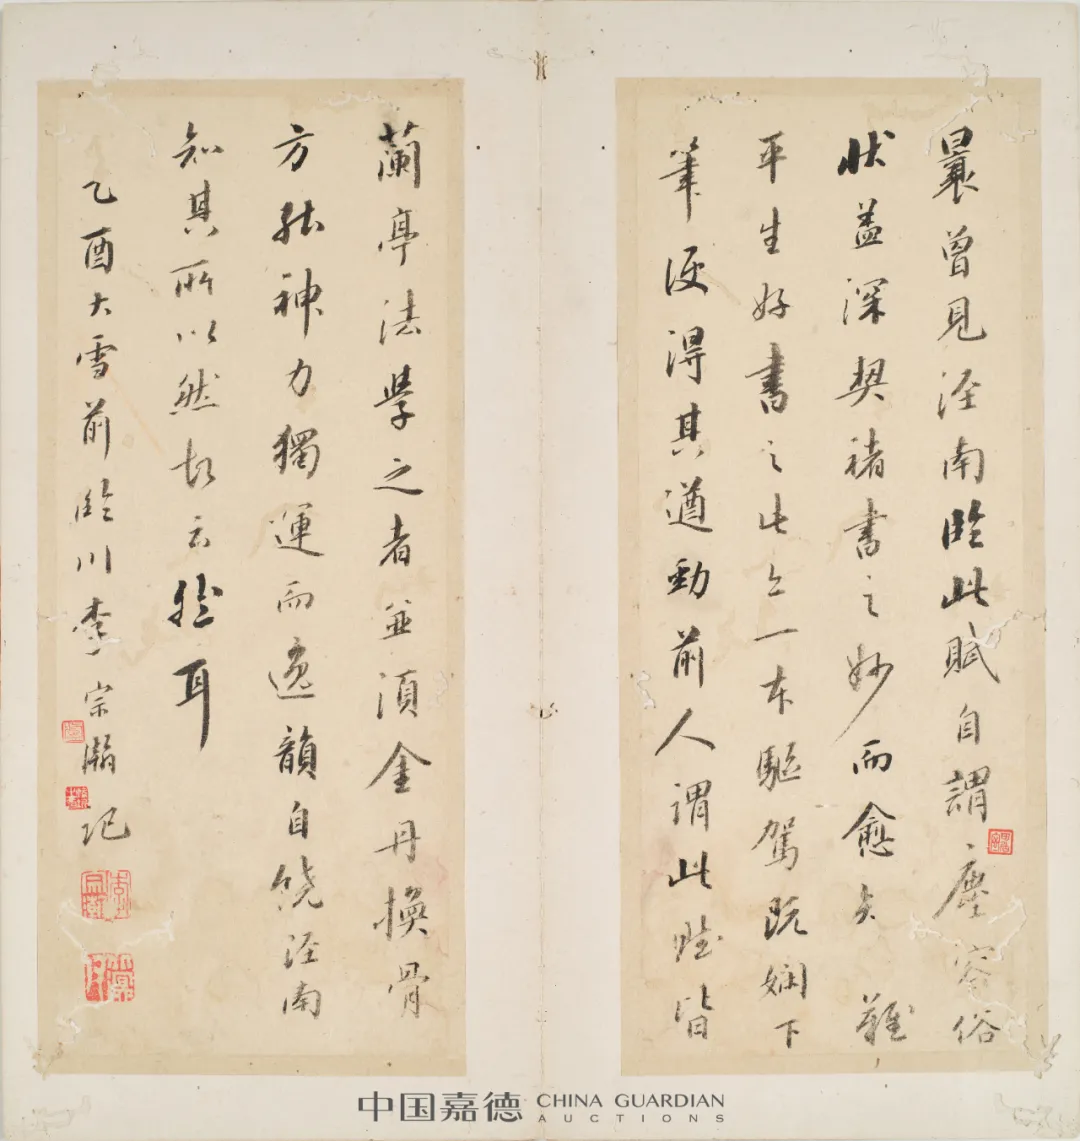 曩曾見涇南臨此賦自謂塵容俗
狀蓋深契褚書之妙而愈難
平生好書之此一本驅駕既嫻下
筆便得其遒勁前人謂此賦皆
蘭亭法學之者並須金丹換骨
方能神力獨運而逸韻自饒涇南
知其所以然故云耳
乙酉大雪前臨川李宗瀚記
中国嘉德 CHINA GUARDIAN
AUCTIONS